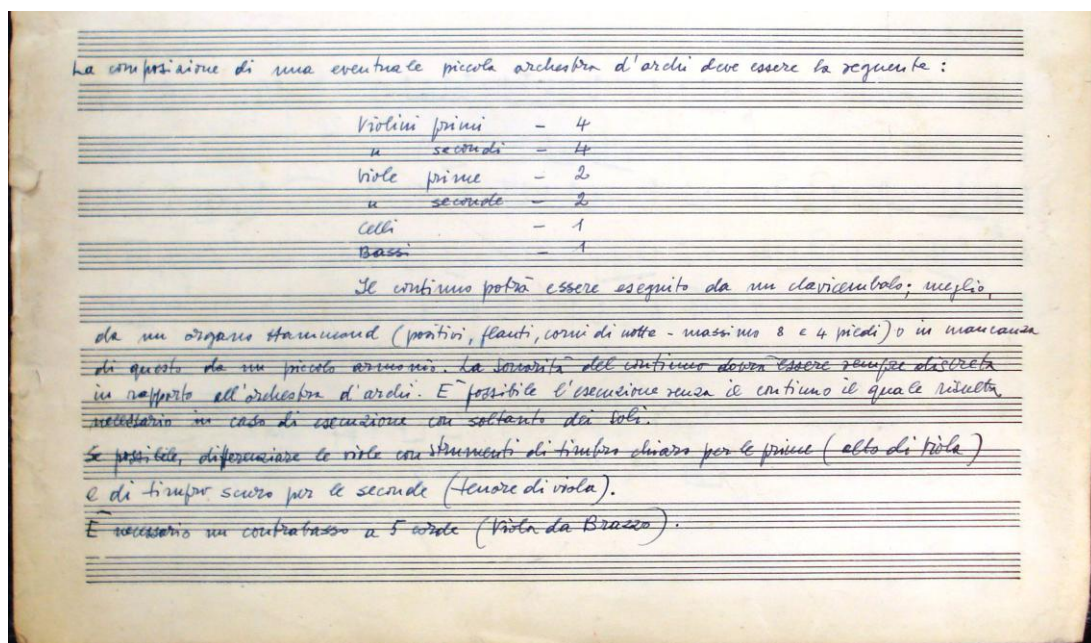 La composizione di una eventuale piccola orchestra d'archi deve essere la seguente:
Violini primi - 4
" secondi - 4
Viole prime - 2
" seconde - 2
Celli - 1
Bassi - 1
Il continuo potrà essere eseguito da un clavicembalo; meglio,
da un organo Hammond (positivi, flauti, corni di notte - massimo 8 e 4 piedi) o in mancanza
di questo da un piccolo armonio. La sonorità del continuo dovrà essere sempre discreta
in rapporto all'orchestra d'archi. È possibile l'esecuzione senza il continuo il quale risulta
necessario in caso di esecuzione con soltanto dei soli.
Se possibile, differenziare le viole con strumenti di timbro chiaro per le prime (alto di viola)
e di timbro scuro per le seconde (tenore di viola).
È necessario un contrabasso a 5 corde (Viola da Brazzo).